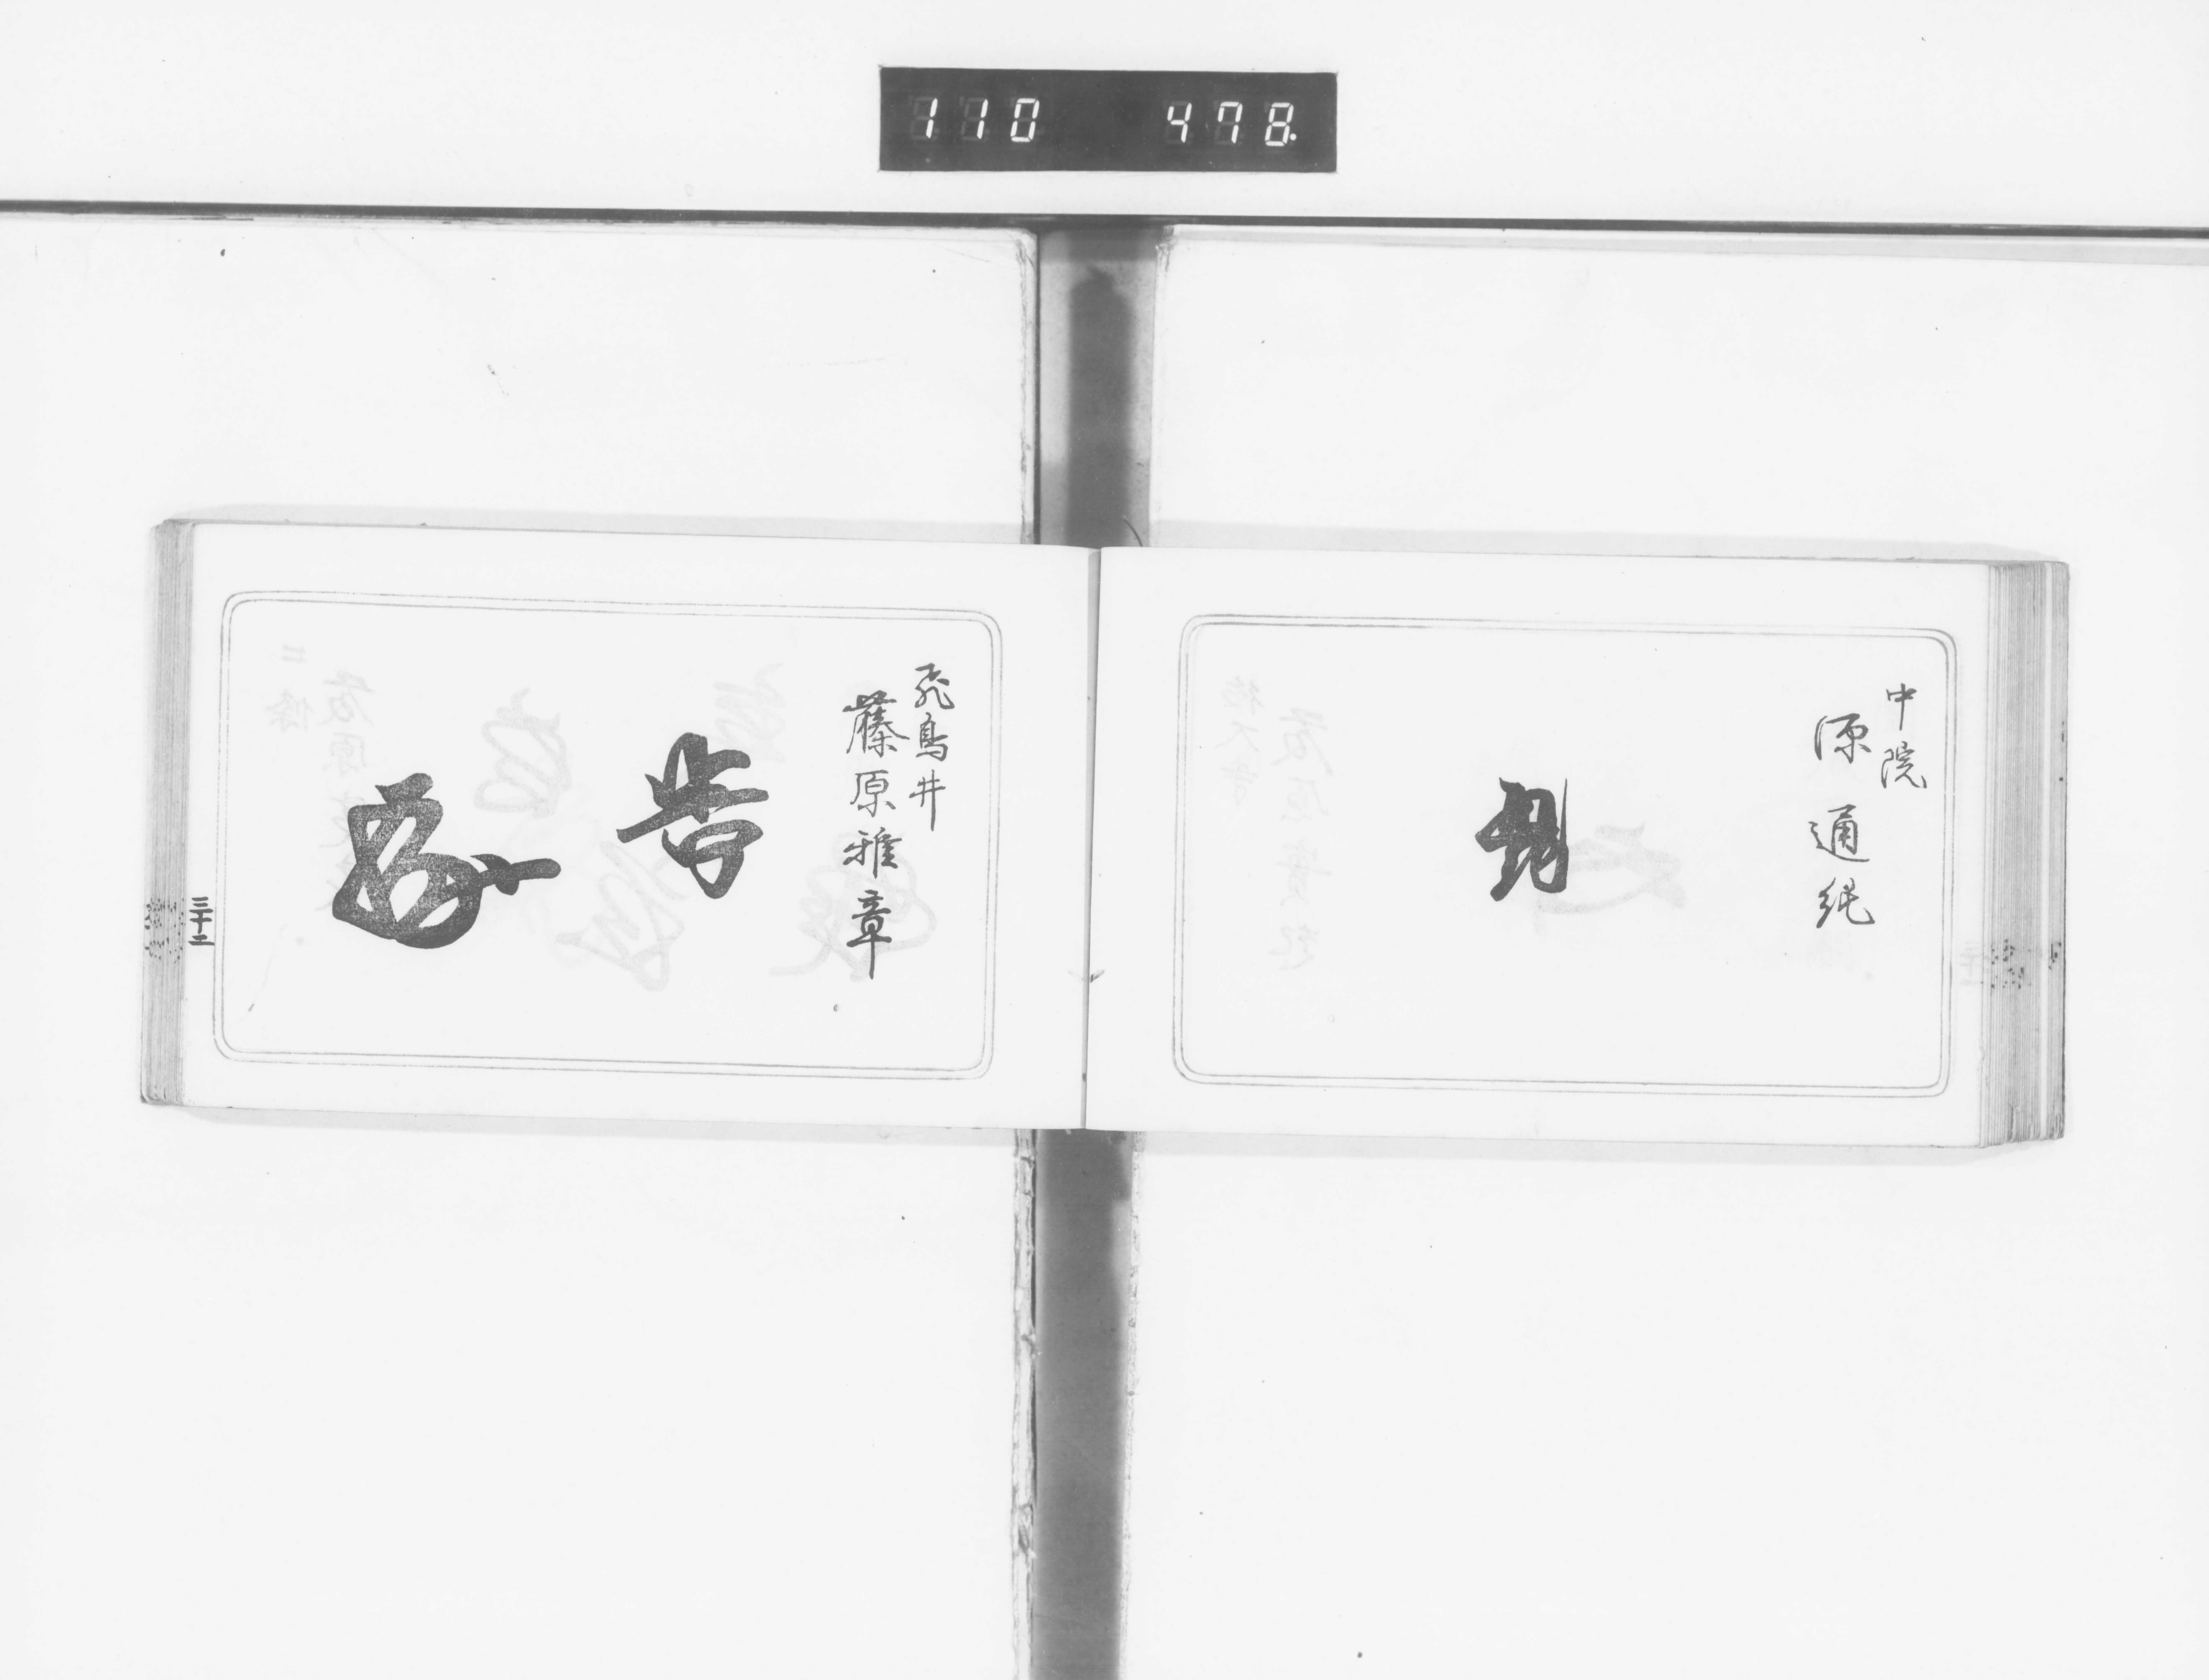 110 478.
中院
源通純
飛鳥井
藤原雅章
三十二